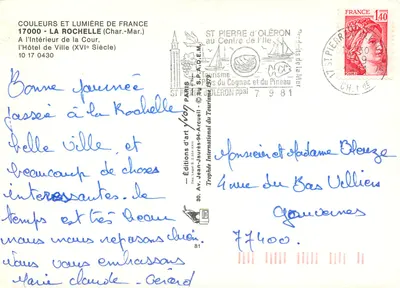 COULEURS ET LUMIÈRE DE FRANCE
17000 - LA ROCHELLE (Char.-Mar.)
A l'Intérieur de la Cour,
l'Hôtel de Ville (XVIe Siècle)
10 17 0430
Bonne journée
passée à La Rochelle
belle ville et
beaucoup de choses
interessantes. le
temps est très beau
nous nous reposons bien.
Nous vous embrassons
Marie Claude - Gérard
Editions d'art yvon PARIS
30, Av. Jean-Jaurès - 94-Arcueil
S.P.A.D.E.M.
Trophée International du Tourisme
81
ST PIERRE D'OLÉRON
au Centre de l'Ile
du Cognac et du Pineau
7 9 81
FRANCE
1,40
Monsieur et Madame
4 rue du Bas Villiers
77400.